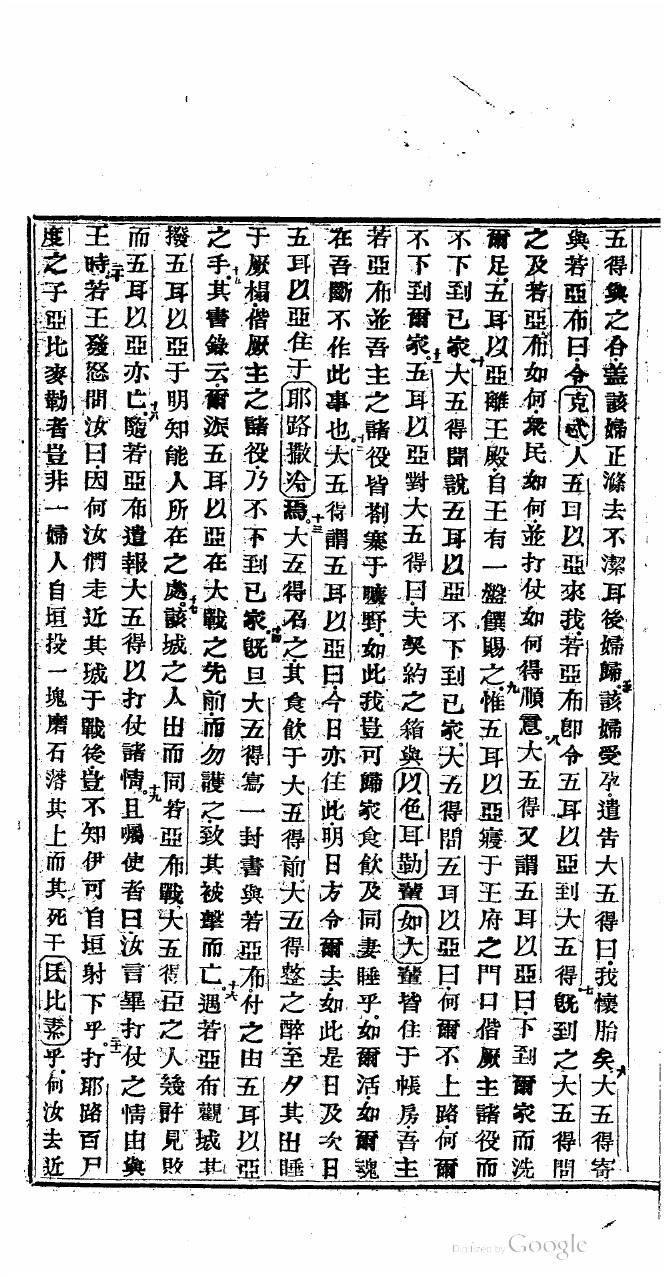 五得與之合蓋該婦正滌去不潔耳後婦歸五該婦受孕遣告大五得曰我懷胎矣六大五得寄
與若亞布曰令克忒人五耳以亞來我若亞布卽令五耳以亞到大五得七旣到之大五得問
之及若亞布如何衆民如何並打仗如何得順意八大五得又謂五耳以亞曰下到爾家而洗
爾足五耳以亞離王殿自王有一盤饌賜之九惟五耳以亞寢于王府之門口偕厥主諸役而
不下到已家十大五得聞說五耳以亞不下到已家大五得問五耳以亞曰何爾不上路何爾
不下到爾家十一五耳以亞對大五得曰夫契約之箱與以色耳勒輩如大輩皆住于帳房吾主
若亞布並吾主之諸役皆劄寨于曠野如此我豈可歸家食飲及同妻睡乎如爾活如爾魂
在吾斷不作此事也十二大五得謂五耳以亞曰今日亦住此明日方令爾去如此是日及次日
五耳以亞住于耶路撒冷焉十三大五得召之其食飲于大五得前大五得整之醉至夕其出睡
于厥榻偕厥主之諸役乃不下到已家十四旣旦大五得寫一封書與若亞布付之由五耳以亞
之手十五其書錄云爾派五耳以亞在大戰之先前而勿護之致其被擊而亡十六遇若亞布觀城其
撥五耳以亞于明知能人所在之處十七該城之人出而同若亞布戰大五得臣之人幾許見敗
而五耳以亞亦亡十八隨若亞布遣報大五得以打仗諸情十九且囑使者曰汝言畢打仗之情由與
王時二十若王發怒問汝曰因何汝們走近其城于戰後豈不知伊可自垣射下乎二十一打耶路百尸
度之子亞比麥勒者豈非一婦人自垣投一塊磨石落其上而其死于氐比素乎何汝去近
Digitized by Google